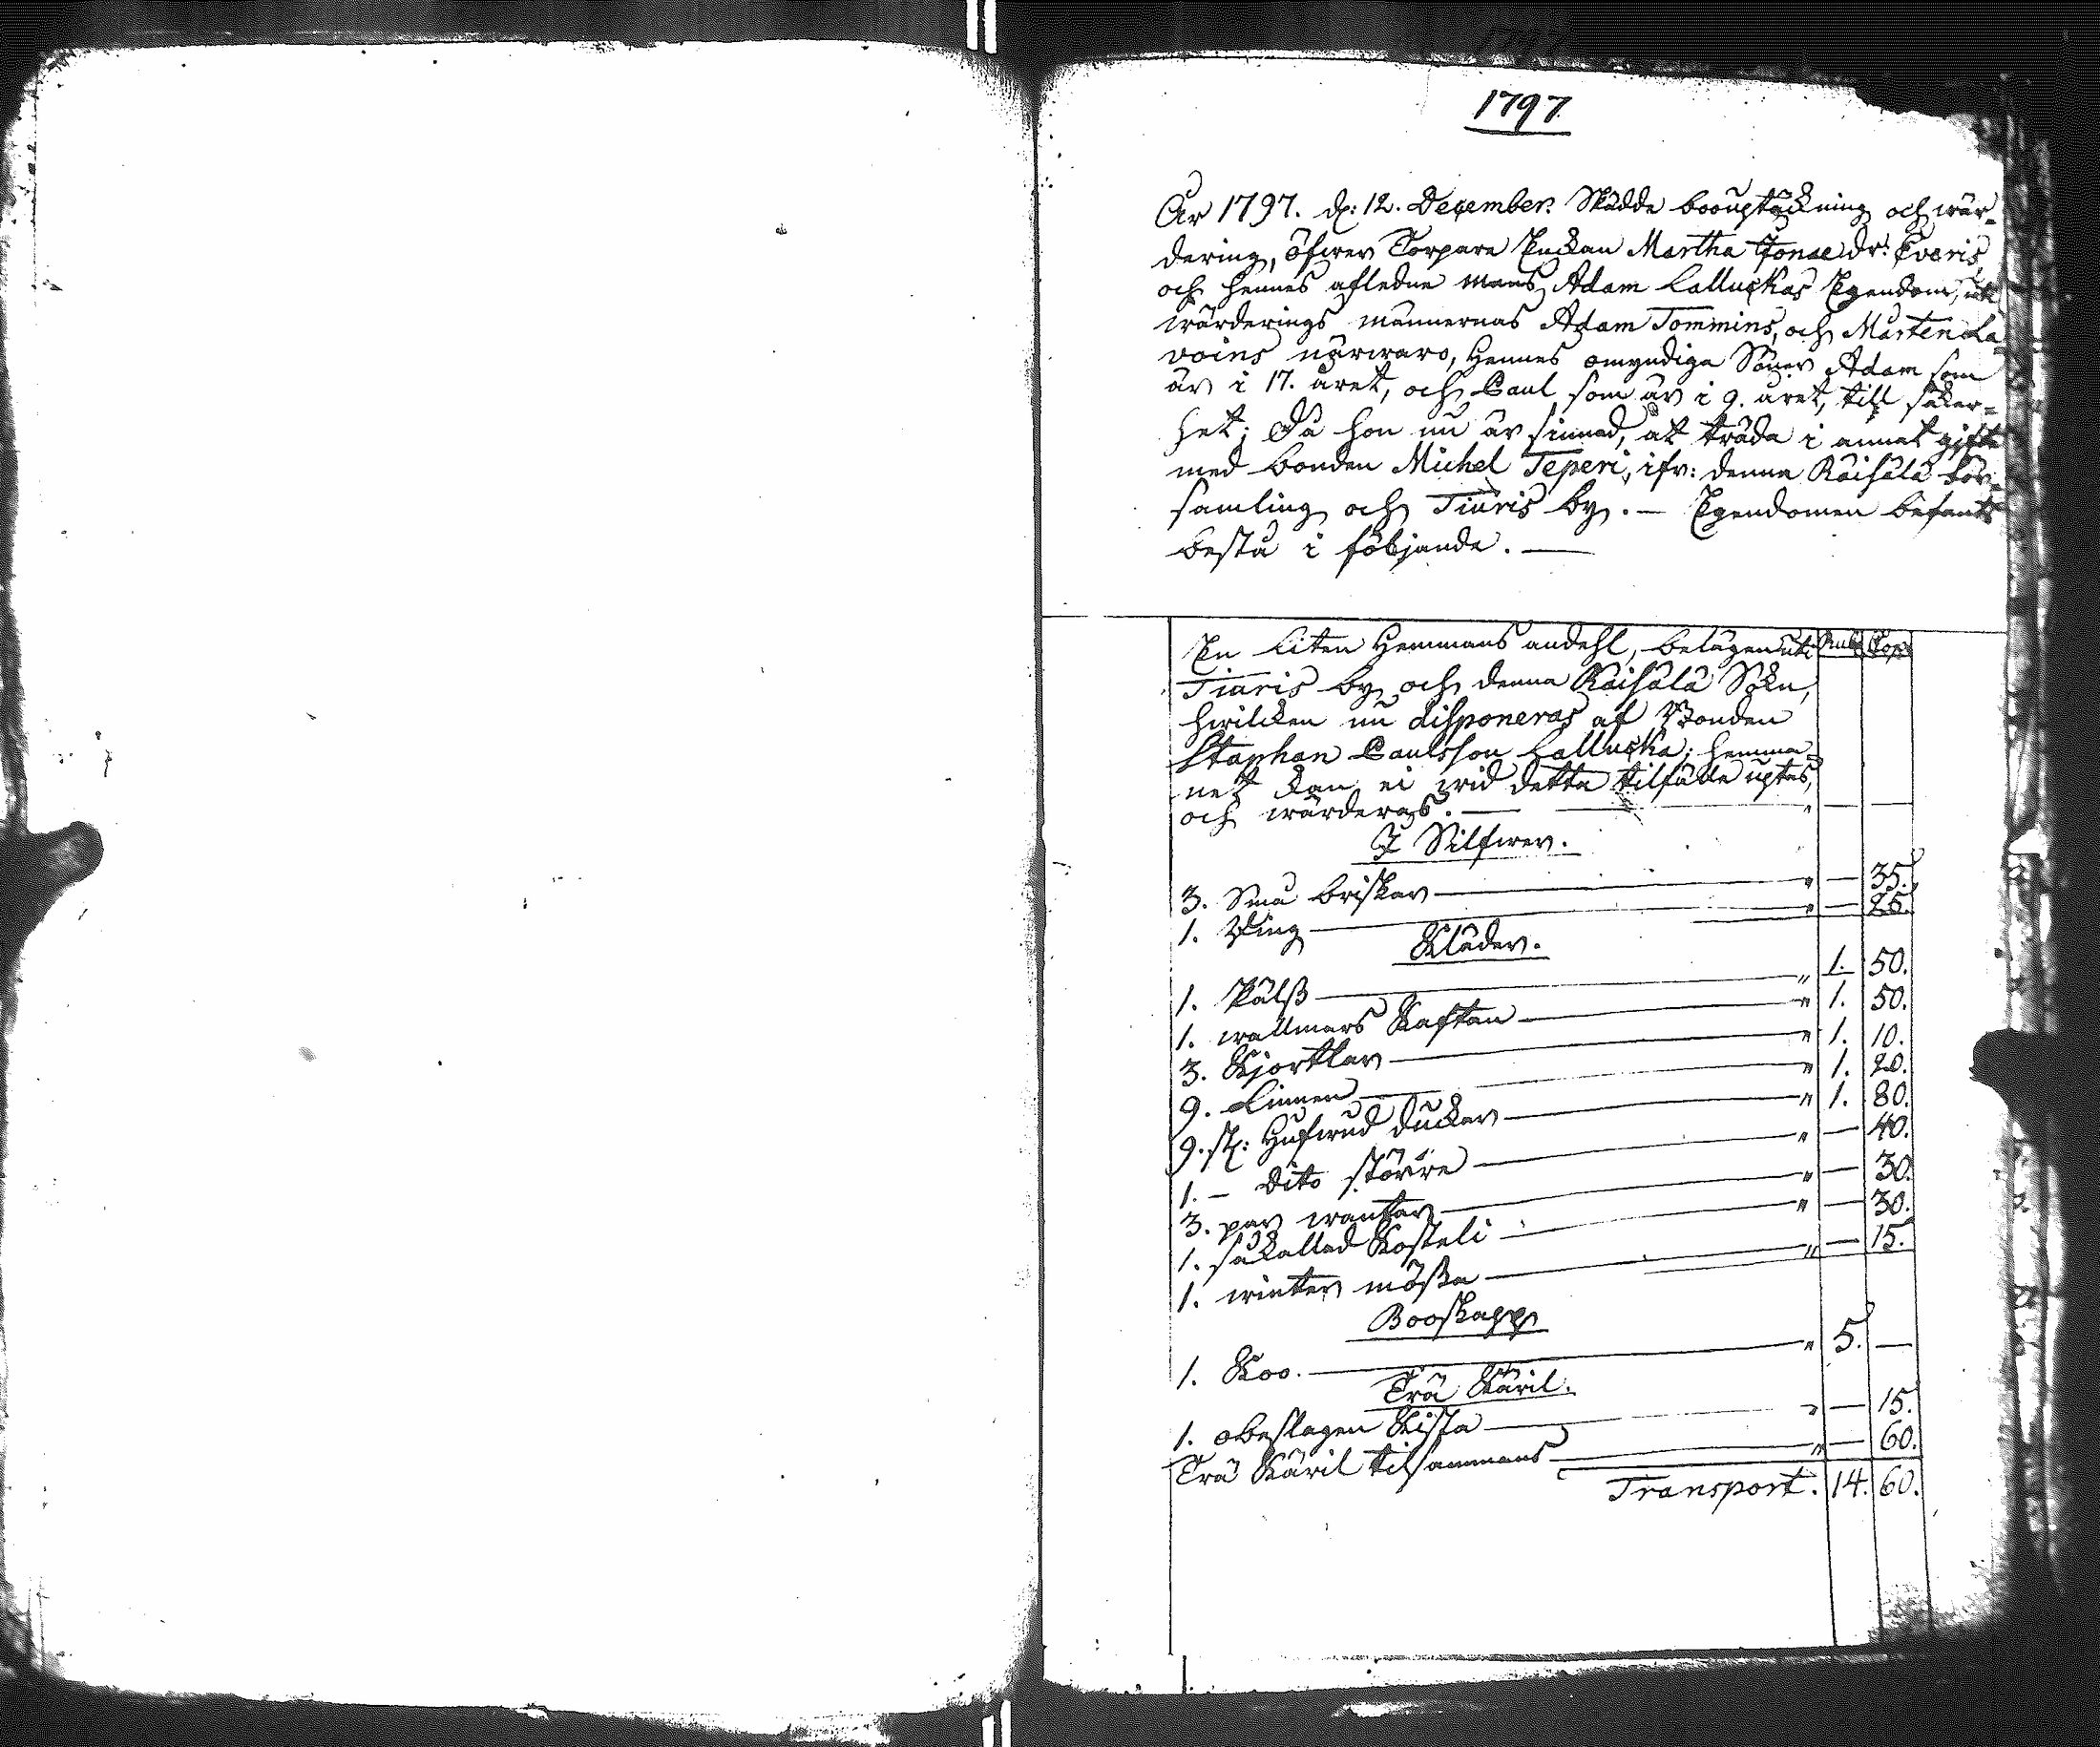 1797
År 1797. d: 12. December. Skedde boouptäckning och wär-
dering, öfwer Torpare Enckan Martha Jonae dr: Everis,
och hennes afledne mans Adam Lalluckas Egendom, uti
wärderings männernas Adam Tommins, och Mårten La
voins närwaro, Hennes omyndiga Söner Adam som
är i 17. året, och Paul som är i 9. året, till säker-
het; Då hon nu är sinnad, at träda i annat gifte
med bonden Michel Teperi, ifr: denna Räisälä för-
samling och Tiuris by. — Egendomen befants
bestå i följande. —
En liten Hemmans andehl, belägen uti Rub. Cop.
Tiuris by och denna Räisälä Sokn,
hwilcken nu disponeras af Bonden
Staphan Paulsson Lallucka; hemma-
net kan ei wid detta tilfälle uptas,
och wärderas. — " — —
I Silfwer.
3. Små briskar — " — 35.
1. Ring — " — 25.
Kläder.
1. Päls — " 1. 50.
1. wallmars Kaftan — " 1. 50.
3. Kjortlar — " 1. 10.
9. Linnen — " 1. 20.
9. st: Hufwud ducker — " 1. 80.
1. — dito större — " — 40.
3. par wantar — " — 30.
1. såkallad Kosteli — " — 30.
1. winter mössa — " — 15.
Booskapp
1. Koo. — " 5. —
Trä Käril.
1. obeslagen Kista — " — 15.
Trä Käril tilsammans — " — 60.
Transport. 14. 60.